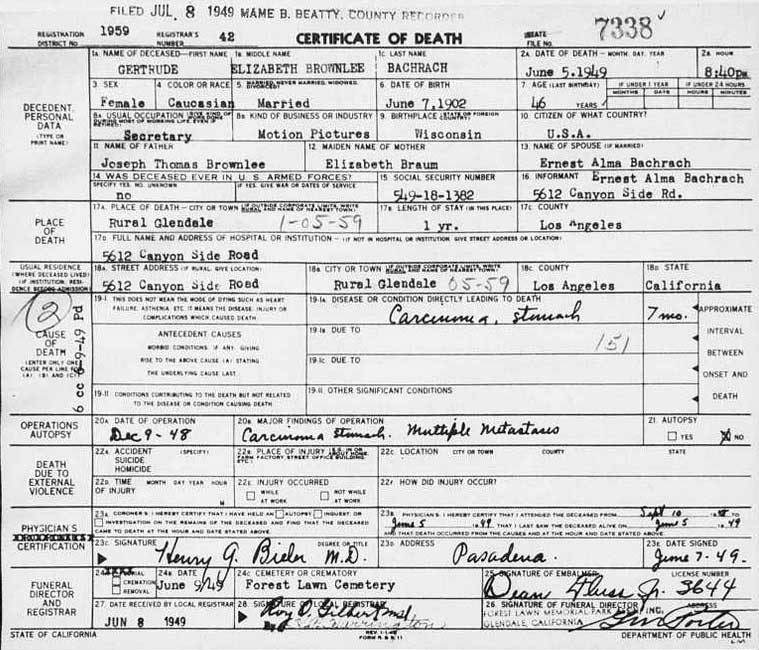 FILED JUL 8 1949 MAME B. BEATTY, COUNTY RECORDER
REGISTRATION DISTRICT NO. 1959 REGISTRAR'S NUMBER 42 CERTIFICATE OF DEATH STATE FILE NO. 7338
DECEDENT PERSONAL DATA (TYPE OR PRINT NAME)
1A NAME OF DECEASED—FIRST NAME 1B MIDDLE NAME 1C LAST NAME 2A DATE OF DEATH—MONTH, DAY, YEAR 2B HOUR
GERTRUDE ELIZABETH BROWNLEE BACHRACH June 5,1949 8:40pm
3 SEX 4 COLOR OR RACE 5. MARRIED, NEVER MARRIED, WIDOWED, DIVORCED? 6. DATE OF BIRTH 7. AGE (LAST BIRTHDAY) IF UNDER 1 YEAR IF UNDER 24 HOURS
MONTHS DAYS HOURS MINUTES
Female Caucasian Married June 7,1902 46 YEARS
8A USUAL OCCUPATION 8B KIND OF BUSINESS OR INDUSTRY 9. BIRTHPLACE (STATE OR FOREIGN COUNTRY) 10. CITIZEN OF WHAT COUNTRY?
Secretary Motion Pictures Wisconsin U.S.A.
11 NAME OF FATHER 12. MAIDEN NAME OF MOTHER 13. NAME OF SPOUSE (IF MARRIED)
Joseph Thomas Brownlee Elizabeth Braum Ernest Alma Bachrach
14 WAS DECEASED EVER IN U. S. ARMED FORCES? 15. SOCIAL SECURITY NUMBER 16 INFORMANT Ernest Alma Bachrach
SPECIFY YES, NO, UNKNOWN IF YES, GIVE WAR OR DATES OF SERVICE
no 549-18-1382 5612 Canyon Side Rd.
PLACE OF DEATH
17A PLACE OF DEATH—CITY OR TOWN 17B LENGTH OF STAY (IN THIS PLACE) 17C COUNTY
Rural Glendale 1-05-59 1 yr. Los Angeles
17D FULL NAME AND ADDRESS OF HOSPITAL OR INSTITUTION—(IF NOT IN HOSPITAL OR INSTITUTION, GIVE STREET ADDRESS OR LOCATION)
5612 Canyon Side Road
USUAL RESIDENCE (WHERE DECEASED LIVED) (IF INSTITUTION, RESIDENCE BEFORE ADMISSION)
18A. STREET ADDRESS (IF RURAL, GIVE LOCATION) 18B CITY OR TOWN 18C COUNTY 18D STATE
5612 Canyon Side Road Rural Glendale 05-59 Los Angeles California
2
CAUSE OF DEATH
(ENTER ONLY ONE CAUSE PER LINE FOR (A) (B) AND (C))
6 cc 6-9-49 Pd
19-I THIS DOES NOT MEAN THE MODE OF DYING SUCH AS HEART FAILURE, ASTHENIA, ETC. IT MEANS THE DISEASE, INJURY OR COMPLICATIONS WHICH CAUSED DEATH
19-IA DISEASE OR CONDITION DIRECTLY LEADING TO DEATH
Carcinoma, stomach 7 mo.
APPROXIMATE INTERVAL BETWEEN ONSET AND DEATH
ANTECEDENT CAUSES
MORBID CONDITIONS IF ANY, GIVING RISE TO THE ABOVE CAUSE (A) STATING THE UNDERLYING CAUSE LAST.
19-IB DUE TO 151
19-IC DUE TO
19-II CONDITIONS CONTRIBUTING TO THE DEATH BUT NOT RELATED TO THE DISEASE OR CONDITION CAUSING DEATH
19-II OTHER SIGNIFICANT CONDITIONS
OPERATIONS AUTOPSY
20A DATE OF OPERATION 20B MAJOR FINDINGS OF OPERATION 21. AUTOPSY
Dec 9-48 Carcinoma stomach. Multiple Metastasis YES X NO
DEATH DUE TO EXTERNAL VIOLENCE
22A ACCIDENT SUICIDE HOMICIDE (SPECIFY) 22B PLACE OF INJURY 22C LOCATION CITY OR TOWN COUNTY STATE
22D TIME OF INJURY MONTH DAY YEAR HOUR M 22E INJURY OCCURRED WHILE AT WORK NOT WHILE AT WORK 22F HOW DID INJURY OCCUR?
PHYSICIAN'S CERTIFICATION
23A CORONER'S: I HEREBY CERTIFY THAT I HAVE HELD AN AUTOPSY, INQUEST OR INVESTIGATION ON THE REMAINS OF THE DECEASED AND FIND THAT THE DECEASED CAME TO DEATH AT THE HOUR AND DATE STATED ABOVE.
23B PHYSICIAN'S: I HEREBY CERTIFY THAT I ATTENDED THE DECEASED FROM Sept 10 48 TO June 5 1949 THAT I LAST SAW THE DECEASED ALIVE ON June 5 1949 AND THAT DEATH OCCURRED FROM THE CAUSES AND AT THE HOUR AND DATE STATED ABOVE.
23C SIGNATURE DEGREE OR TITLE 23D ADDRESS 23E DATE SIGNED
Henry G. Bieler M.D. Pasadena. June 7-49.
FUNERAL DIRECTOR AND REGISTRAR
24A CREMATION REMOVAL 24B DATE 24C CEMETERY OR CREMATORY 25 SIGNATURE OF EMBALMER LICENSE NUMBER
June 9/49 Forest Lawn Cemetery Dean Fluss Jr. 3644
27. DATE RECEIVED BY LOCAL REGISTRAR 28. SIGNATURE OF LOCAL REGISTRAR 26. SIGNATURE OF FUNERAL DIRECTOR ADDRESS
JUN 8 1949 Roy O. Gilbert FOREST LAWN MEMORIAL-PARK INC.
GLENDALE, CALIFORNIA
STATE OF CALIFORNIA REV. 1-1-49 DEPARTMENT OF PUBLIC HEALTH